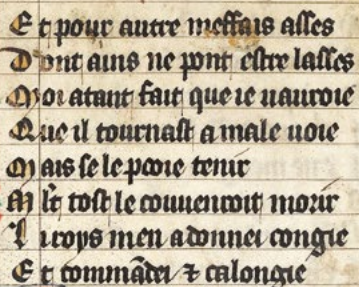 E t pour autre meffais asses
D ont ains ne pont estre lasses
M oi atant fait que ie nauroie
Q ue il tournast a male uoie
M ais se le pooie tenir
M lt tost le couuenroit morir
L i roys men a donnei congie
E t commãdei ⁊ calongie